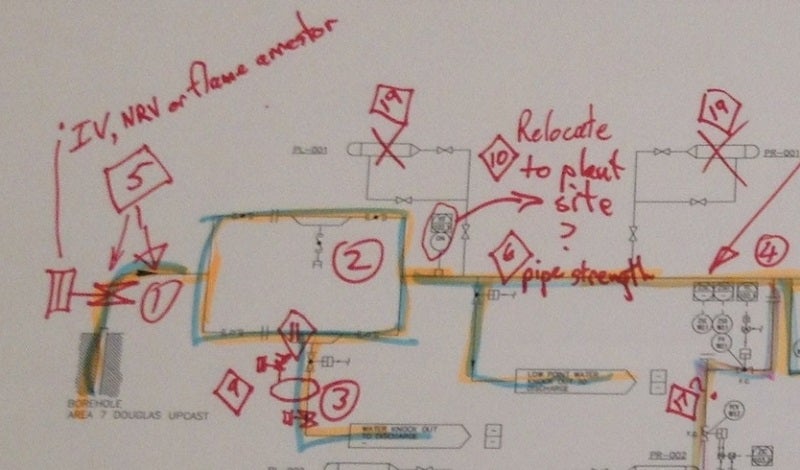 IV, NRV or flame arrestor
19
19
5
10
Relocate
to plant
site
?
PL-001
PR-001
2
6
pipe strength
4
1
11
9
3
LOW POINT WATER
KNOCK OUT TO
DISCHARGE
BOREHOLE
AREA 7 DOUGLAS UPCAST
WATER KNOCK OUT
TO DISCHARGE
?
PR-002